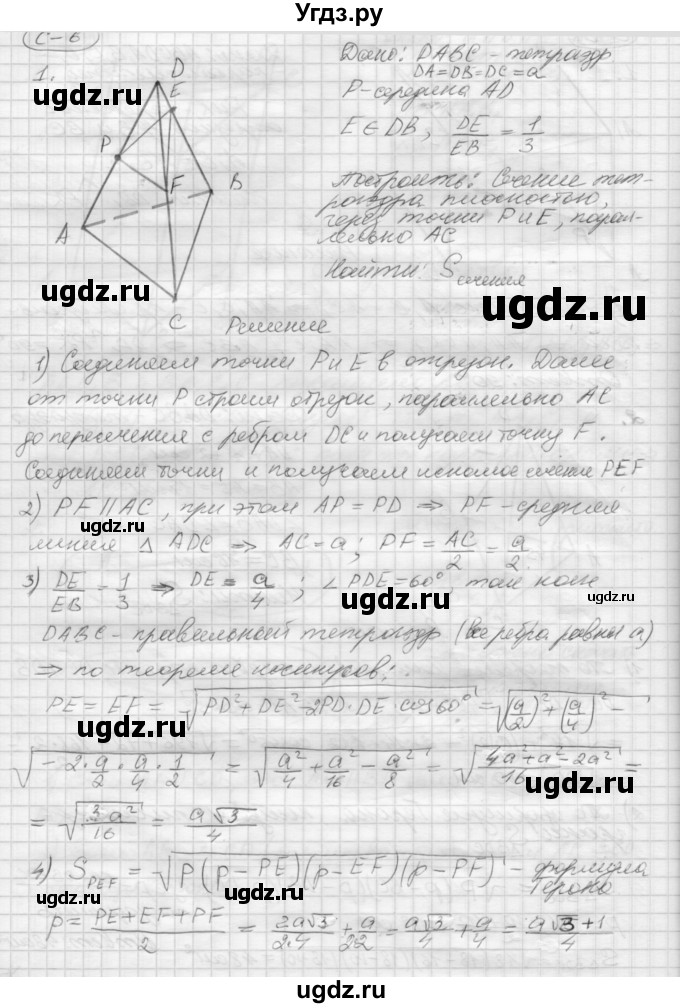 Угдз.ру
С-6
1.
Дано: DABC - тетраэдр
DA=DB=DC=a
P-середина AD
E ∈ DB, DE/EB = 1/3
Построить: Сечение тет-
раэдра плоскостью,
через точки P и E, парал-
лельно AC
Найти: Sсечения
D
E
P
F
B
A
C
ugdz.ru
ugdz.ru
ugdz.ru
ugdz.ru
Решение
1) Соединяем точки P и E в отрезок. Далее
от точки P строим отрезок, параллельно AC
до пересечения с ребром DC и получаем точку F.
Соединяем точки и получаем искомое сечение PEF
2) PF || AC, при этом AP = PD ⇒ PF - средняя
ugdz.ru
линия △ ADC ⇒ AC = a; PF = AC/2 = a/2
3) DE/EB = 1/3 ⇒ DE = a/4; ∠PDE = 60°, так как
ugdz.ru
ugdz.ru
DABC - правильный тетраэдр (все ребра равны a)
⇒ по теореме косинусов:
PE = EF = √(PD² + DE² - 2PD · DE · cos60°) = √((a/2)² + (a/4)² -
ugdz.ru
√(- 2 · a/2 · a/4 · 1/2) = √(a²/4 + a²/16 - a²/8) = √((4a² + a² - 2a²)/16) =
ugdz.ru
= √(3a²/16) = a√3/4
ugdz.ru
4) S_PEF = √(P(p-PE)(p-EF)(p-PF)) - формула
Герона
ugdz.ru
p = (PE+EF+PF)/2 = 2a√3/2·4 + a/22 = a√3/4 + a/4 = a√3+1/4
ugdz.ru